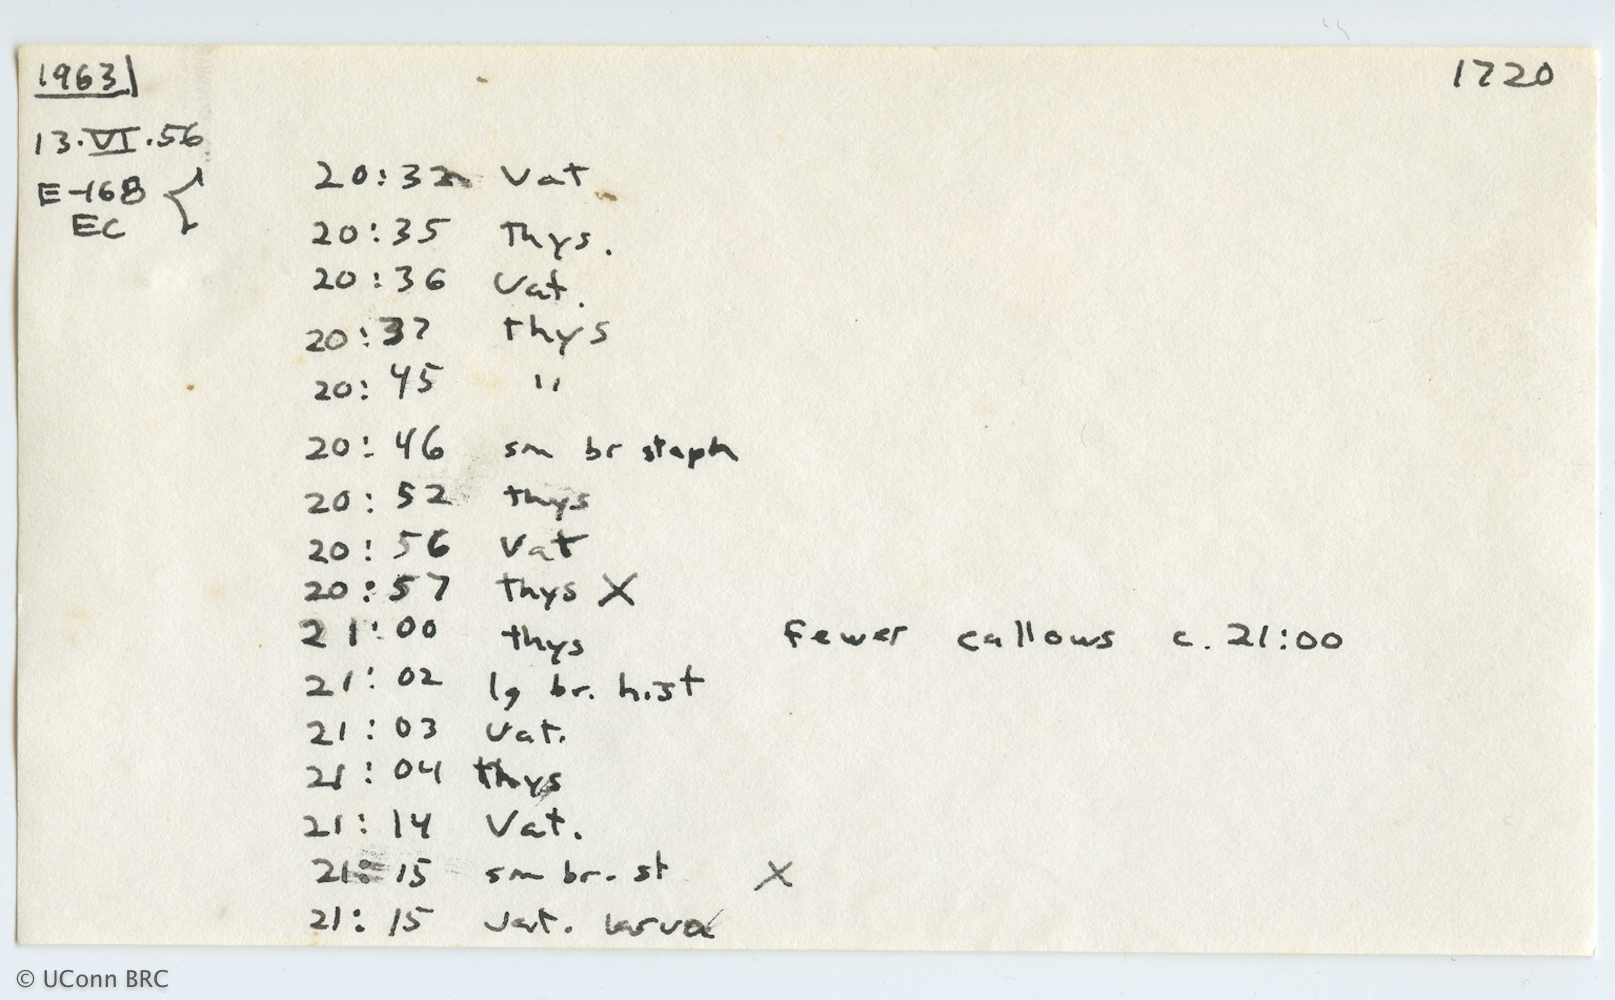 1963 1720
13.VI.56
E-168
EC
20:32 Vat
20:35 Thys.
20:36 Vat.
20:37 thys
20:45 "
20:46 sm br staph
20:52 thys
20:56 Vat
20:57 thys X
21:00 thys Fewer callows c. 21:00
21:02 lg br. hist
21:03 Vat.
21:04 thys
21:14 Vat.
21:15 sm br. st X
21:15 Vat. larva
© UConn BRC